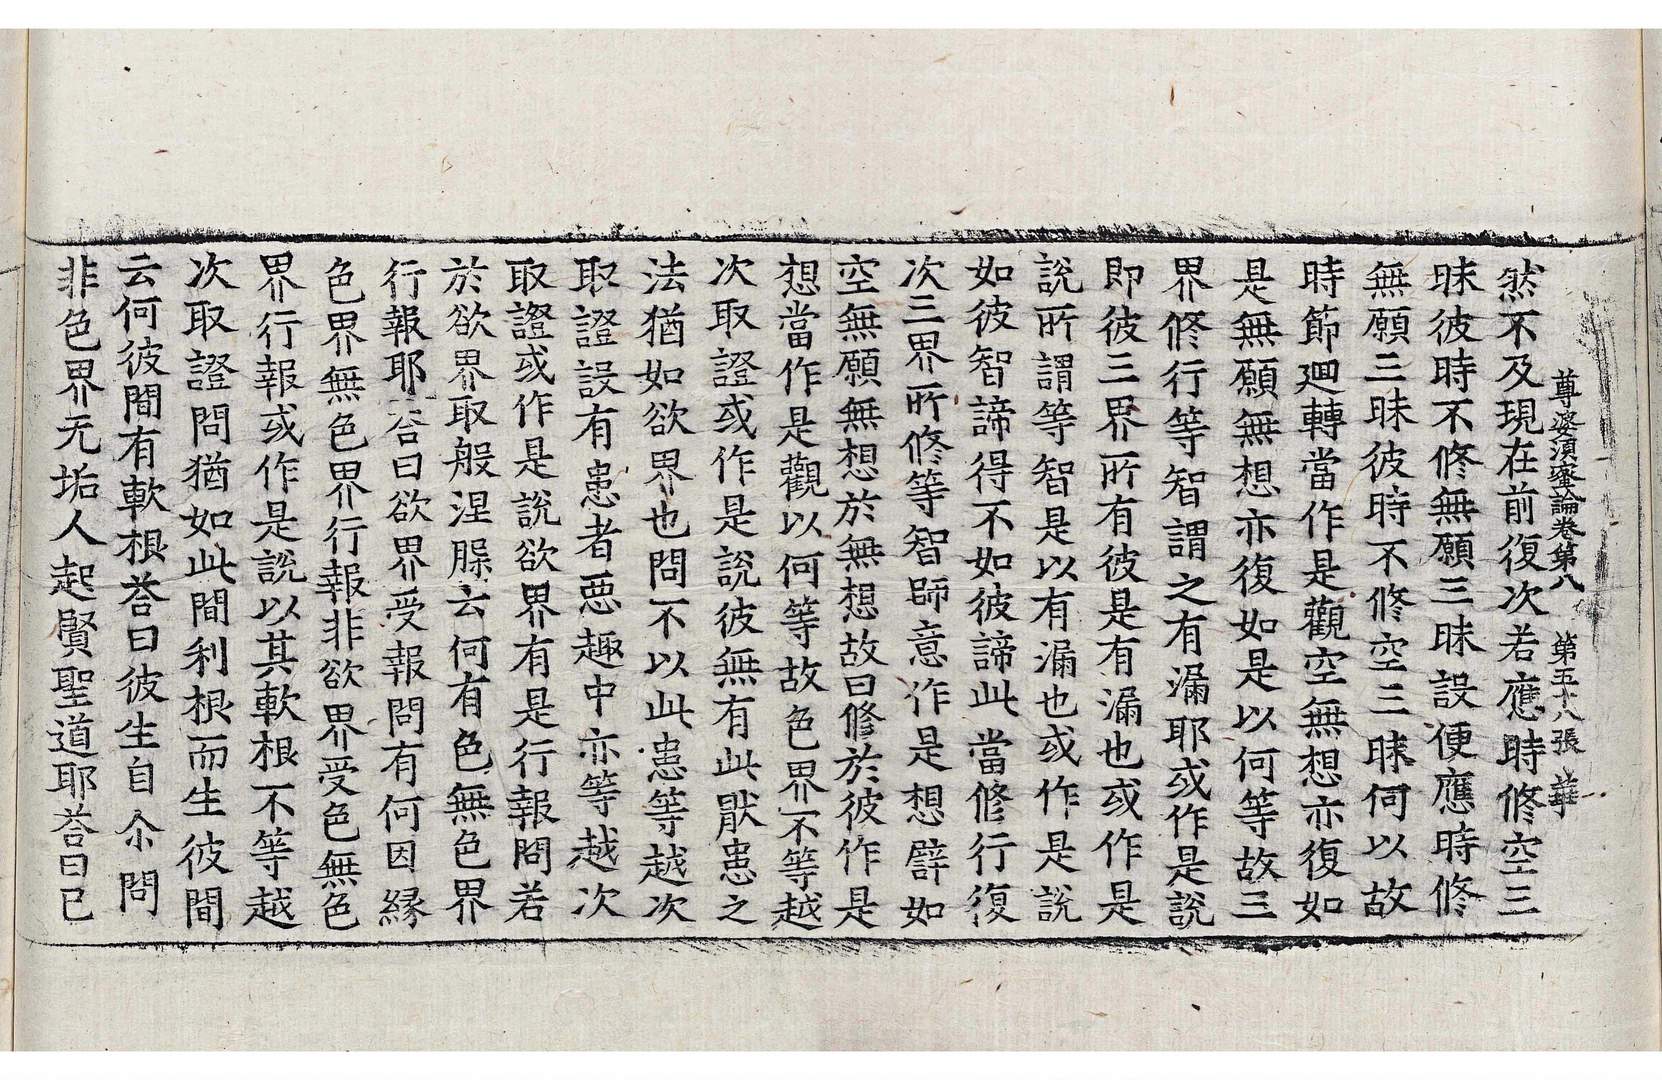 尊婆須蜜論卷第八　第五十八張
然不及現在前復次若應時修空三
昧彼時不修無願三昧設便應時修
無願三昧彼時不修空三昧何以故
時節迴轉當作是觀空無想亦復如
是無願無想亦復如是以何等故三
界修行等智謂之有漏耶或作是說
即彼三界所有彼是有漏也或作是
說所謂等智是以有漏也或作是說
如彼智諦得不如彼諦此當修行復
次三界所修等智師意作是想譬如
空無願無想於無想故曰修於彼作是
想當作是觀以何等故色界不等越
次取證或作是說彼無有此猒患之
法猶如欲界也問不以此患等越次
取證設有患者惡趣中亦等越次
取證或作是說欲界有是行報問若
於欲界取般涅槃云何有色無色界
行報耶荅曰欲界受報問有何因緣
色界無色界行報非欲界受色無色
界行報或作是說以其軟根不等越
次取證問猶如此間利根而生彼間
云何彼間有軟根荅曰彼生自尒問
非色界无垢人起賢聖道耶荅曰已